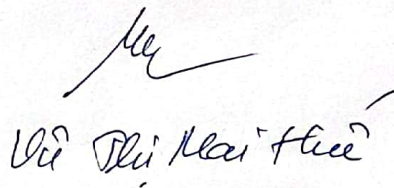 Vũ Thị Mai Huê